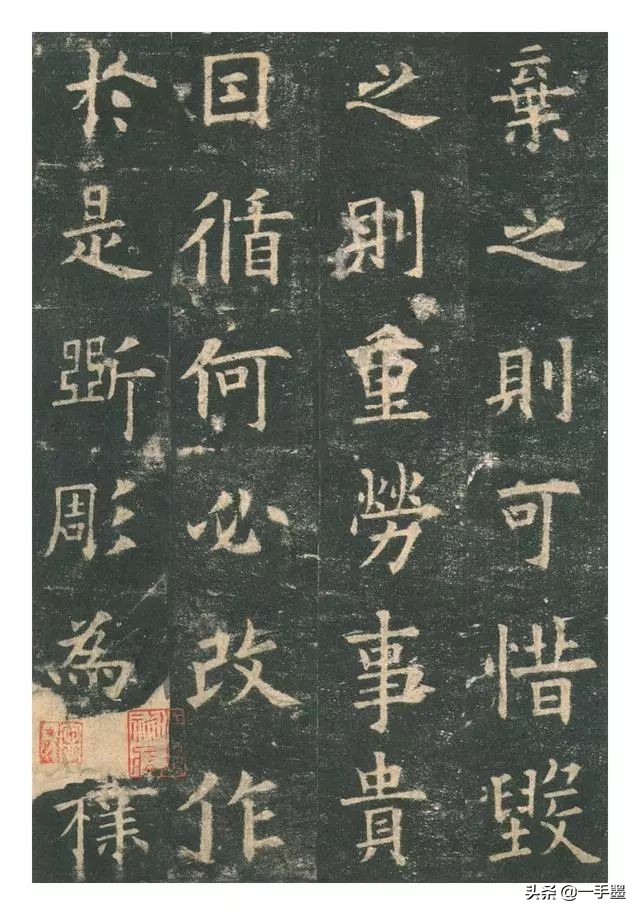 棄之則可惜毀
之則重勞事貴
因循何必改作
於是斲彫為樸
头条 @一手墨